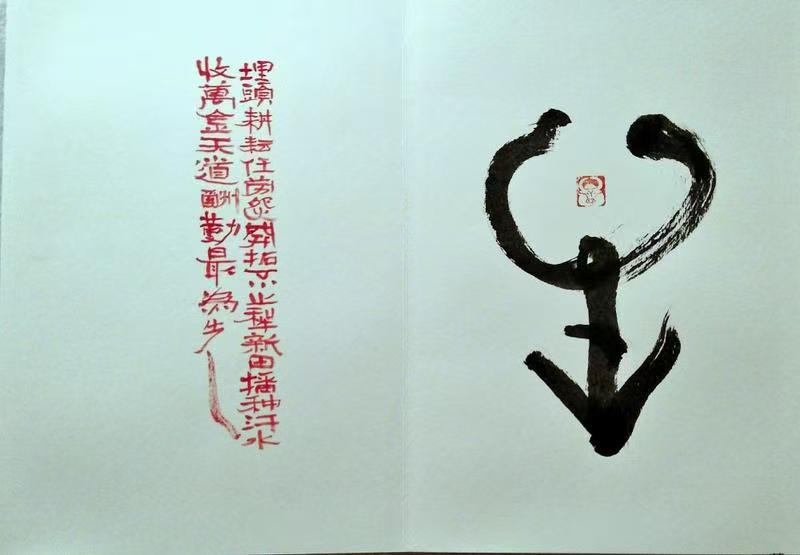 埋頭耕耘任劳怨拓不止犁新田播种汗水
收萬金天道酬勤最為牛
牛